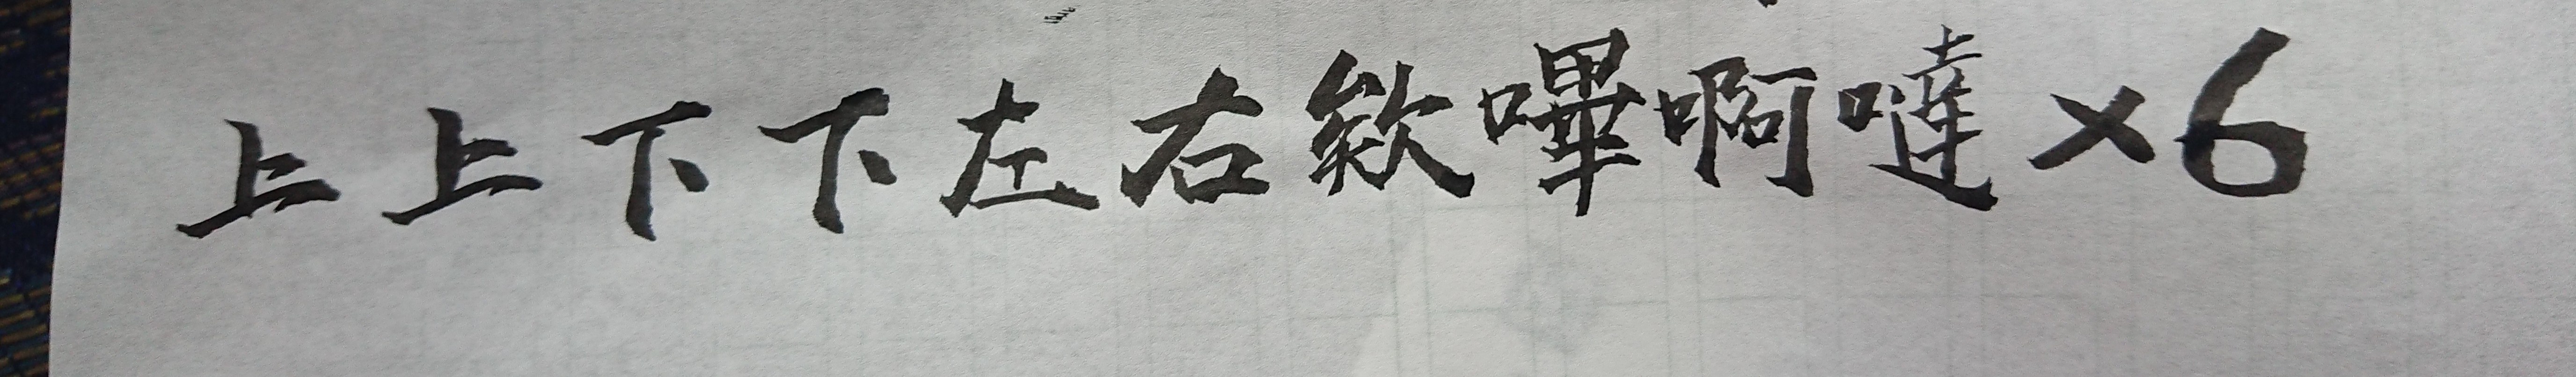 上上下下左右欸嗶啊噠×6